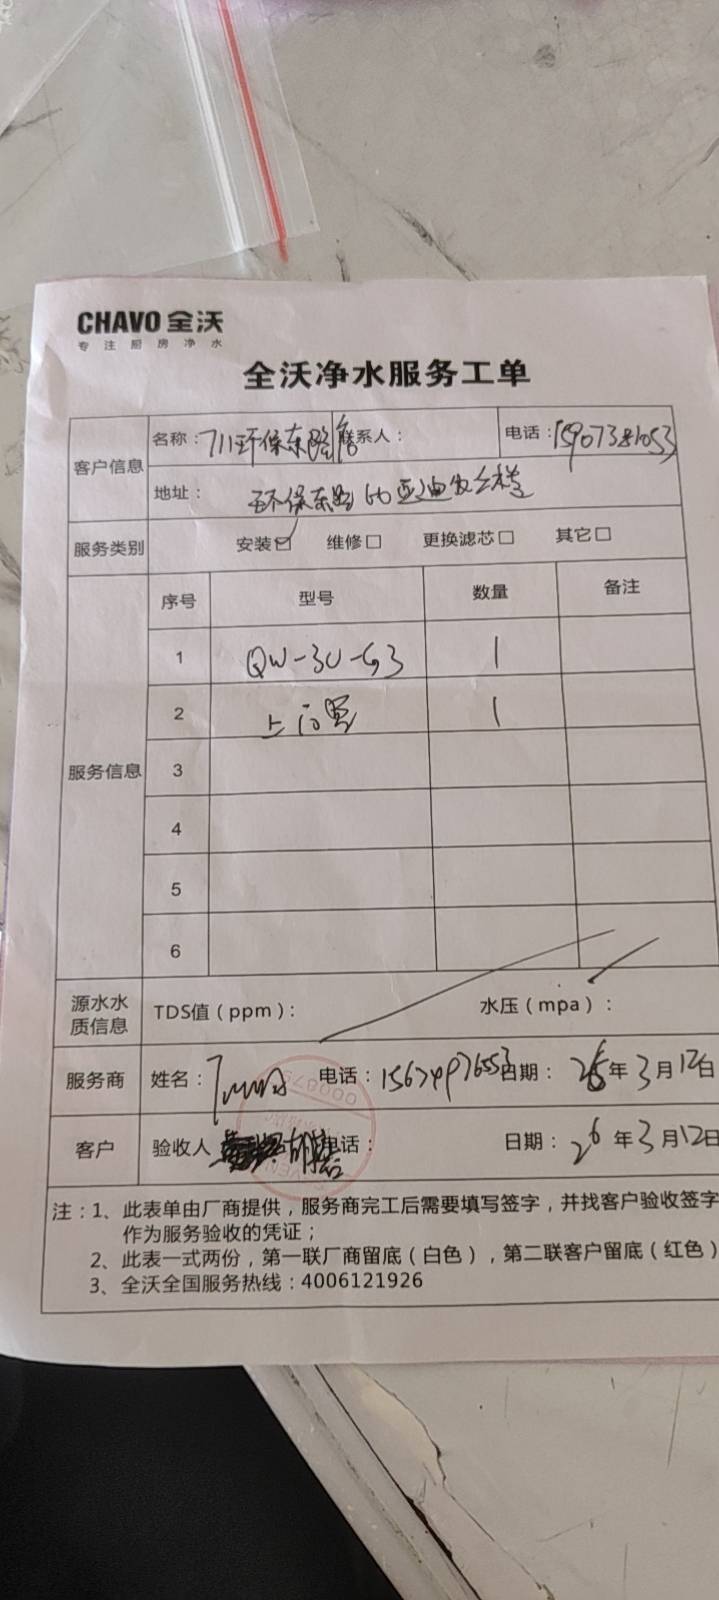 CHAVO 全沃
专注厨房净水
全沃净水服务工单
客户信息 名称：711环保东路店 联系人： 电话：15907381053
地址： 环保东路
服务类别 安装☑ 维修□ 更换滤芯□ 其它□
服务信息 序号 型号 数量 备注
1 QW-3U-G3 1
2 1
3
4
5
6
源水水质信息 TDS值（ppm）： 水压（mpa）：
服务商 姓名： 电话：15674976553 日期： 26年3月12日
客户 验收人 电话： 日期： 26年3月12日
注：1、此表单由厂商提供，服务商完工后需要填写签字，并找客户验收签字
作为服务验收的凭证；
2、此表一式两份，第一联厂商留底（白色），第二联客户留底（红色）
3、全沃全国服务热线：4006121926